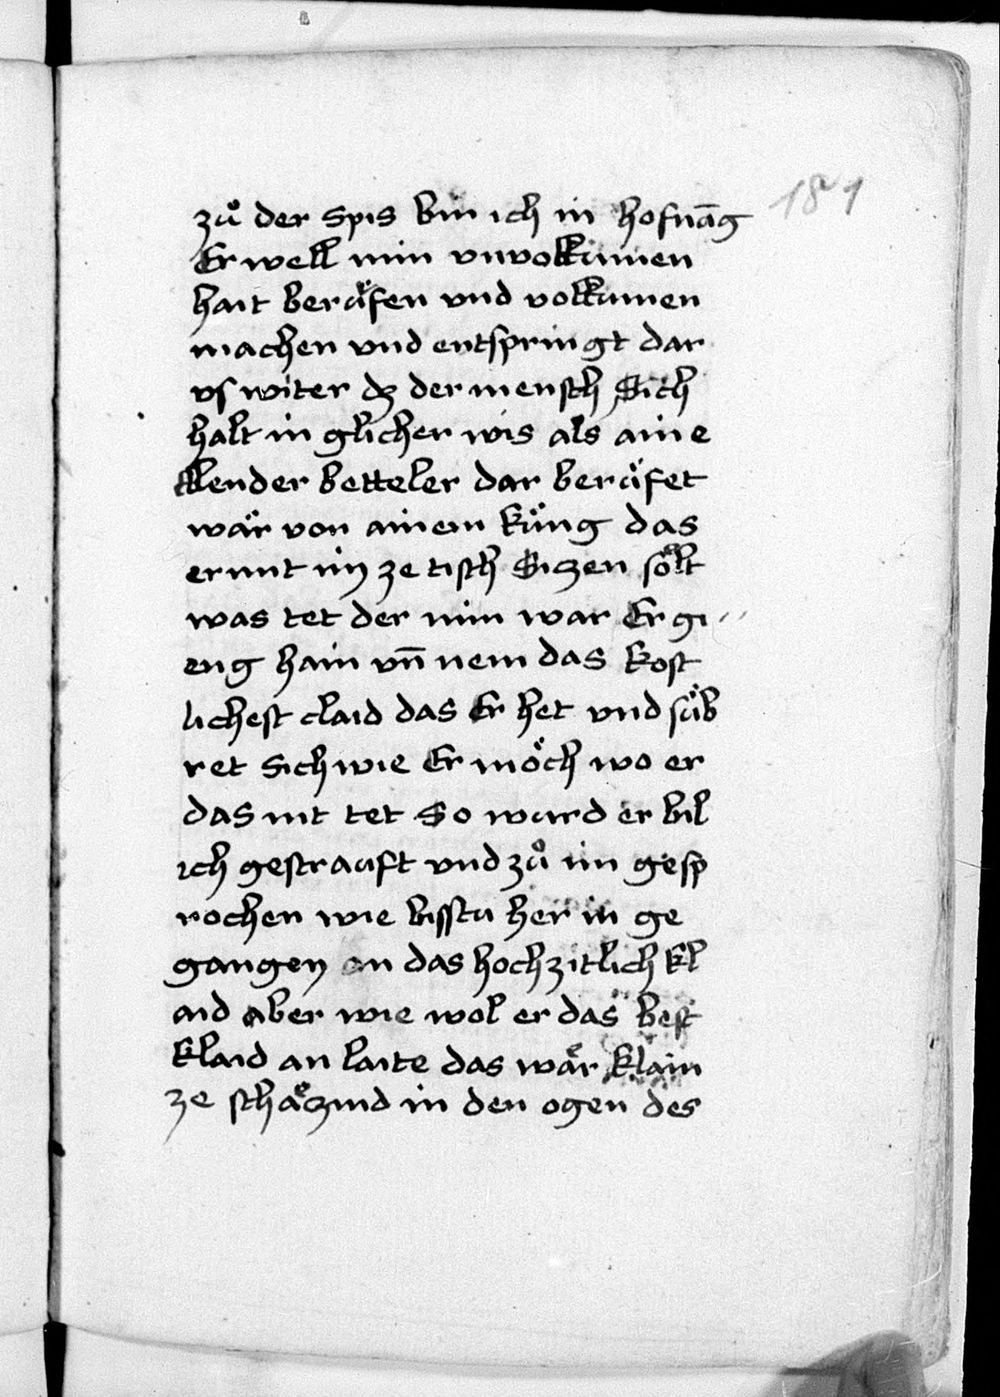 181
zuͦ der spis bin ich in hofnūg
Er well min vnvolkumen
hait beruͤfen vnd volkumen
machen vnd entspringt dar
vs witer dz der mensch Sich
halt in glicher wis als ain e
llender betteler dar beruͤfet
waͤr von ainem kuͤng das
er mit im ze tisch Sizen soͤlt
was tet der nun war Er gi
eng hain vn̄ nem das kost
lichest claid das Er het vnd suͤb
ret sich wie Er moͤch wo er
das nit tet So wurd er bil
ich gestrauft vnd zuͦ im gesp
rochen wie bisstu her in ge
gangen on das hochzitlich kl
aid aber wie wol er das best
klaid an laite das waͤr klain
ze schaͤzind in den ogen des